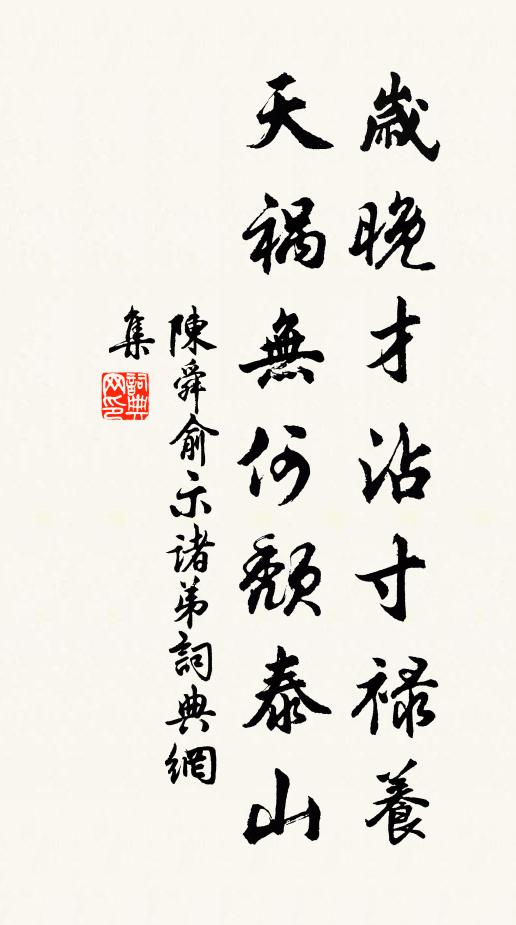 歲晚才沾寸禄養
天禍無何頹泰山
陳舜俞示諸弟詞典網
集
詞典
网印